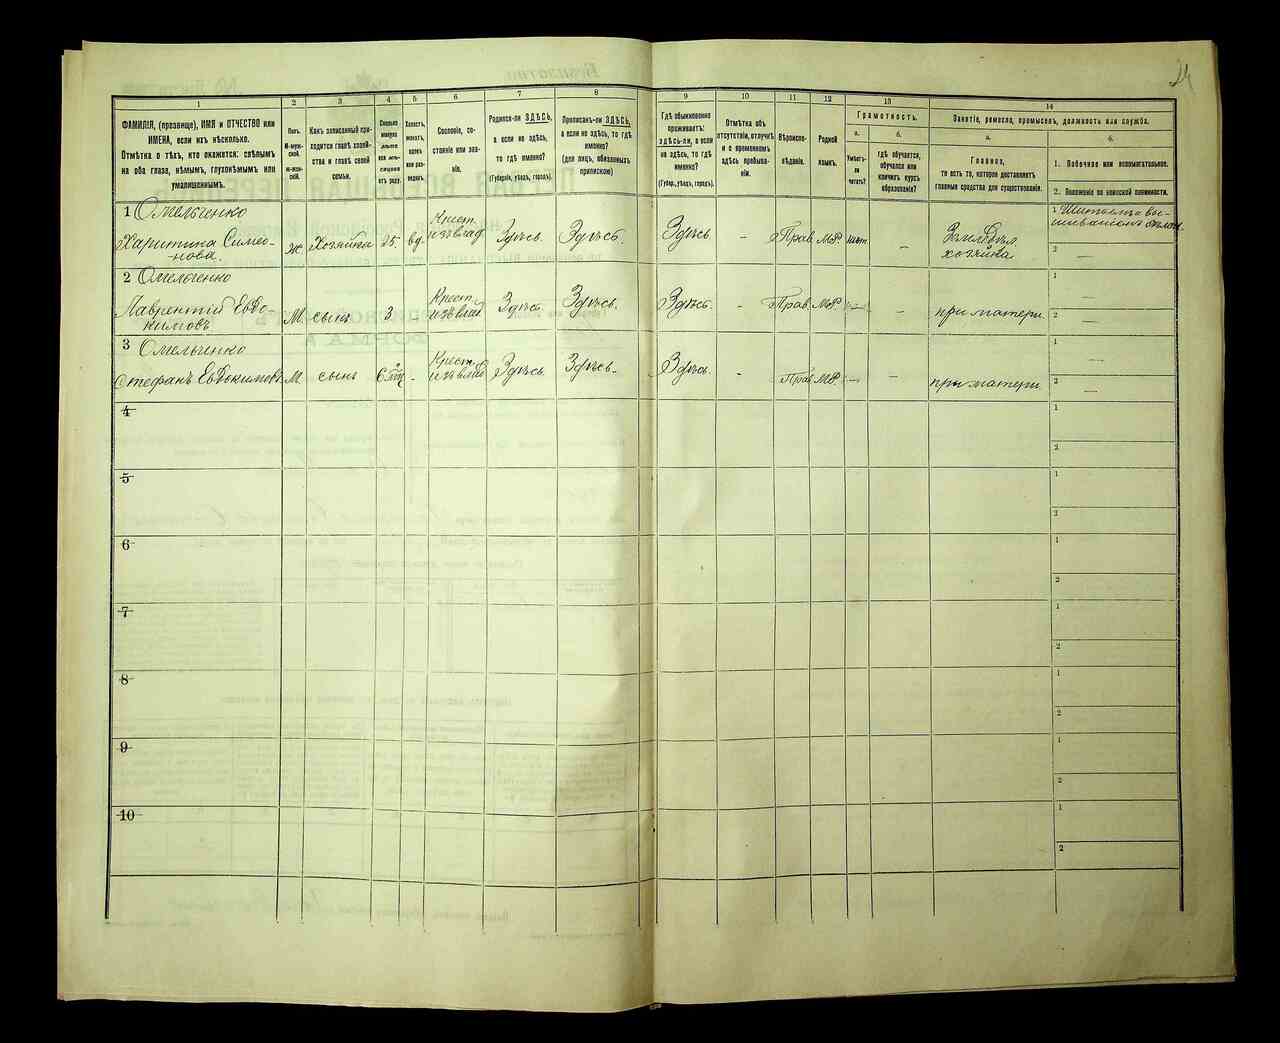 24
1
2
3
4
5
6
7
8
9
10
11
12
13
14
ФАМИЛІЯ, (прозвище), ИМЯ и ОТЧЕСТВО или
ИМЕНА, если ихъ нѣсколько.
Отмѣтка о тѣхъ, кто окажется: слѣпымъ
на оба глаза, нѣмымъ, глухонѣмымъ или
умалишеннымъ.
Полъ.
М-муж-
ской.
Ж-жен-
скій.
Какъ записанный при-
ходится главѣ хозяй-
ства и главѣ своей
семьи.
Сколько
минуло
лѣтъ
или мѣ-
сяцевъ
отъ роду.
Холостъ,
женатъ,
вдовъ
или раз-
веденъ.
Сословіе, со-
стояніе или зва-
ніе.
Родился-ли ЗДѢСЬ,
а если не здѣсь,
то гдѣ именно?
(Губернія, уѣздъ, городъ).
Приписанъ-ли ЗДѢСЬ,
а если не здѣсь, то гдѣ
именно?
(для лицъ, обязанныхъ
припискою)
Гдѣ обыкновенно
проживаетъ:
здѣсь-ли, а если
не здѣсь, то гдѣ
именно?
(Губер., уѣздъ, городъ).
Отмѣтка объ
отсутствіи, отлучкѣ
и о временномъ
здѣсь пребыва-
ніи.
Вѣроиспо-
вѣданіе.
Родной
языкъ.
Грамотность.
а.
б.
Умѣетъ-
ли
читать?
гдѣ обучается,
обучался или
кончилъ курсъ
образованія?
Занятіе, ремесло, промыселъ, должность или служба.
а.
б.
Главное,
то есть то, которое доставляетъ
главныя средства для существованія.
1. Побочное или вспомогательное.
2. Положеніе по воинской повинности.
1 Омельченко
Харитина Симео-
нова.
ж
Хозяйка
25
вд.
Крест.
изъ влад
Здѣсь.
Здѣсь.
Здѣсь
-
Прав.
М.Р.
нѣт
-
Землевл.
хозяйка
1
2 —
2 Омельченко
Лаврентій Евдо-
кимовъ
М.
сынъ
3
Крест.
изъ влад
Здѣсь
Здѣсь.
Здѣсь.
-
Прав.
М.Р.
—
-
при матери.
1 —
2 —
3 Омельченко
Стефанъ Евдокимовъ
М.
сынъ
-
Крест.
изъ влад
Здѣсь
Здѣсь-
Здѣсь.
-
Прав.
М.Р.
—
-
при матери.
1 —
2 —
4
1
2
5
1
2
6
1
2
7
1
2
8
1
2
9
1
2
10
1
2